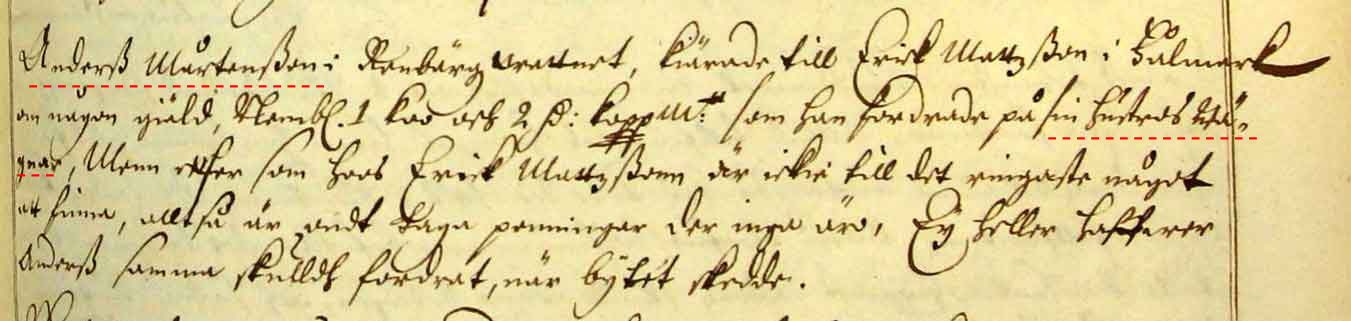 Anderß Mårtenßon i Renbärgzwattnet, kiärade till Erick Mattzßon i Bålmark
om någon giäld, Nembl. 1 koo och 2 skd: koppMt: som han fordrade på sin hustros wä-
gnar, Menn efter som hoos Erick Mattzßonn är ickie till det ringaste något
att finna, alltså är ondt taga penningar der inga äro, Ey heller hafwer
Anderß samma skulldh fordrat, när bytet skedde.